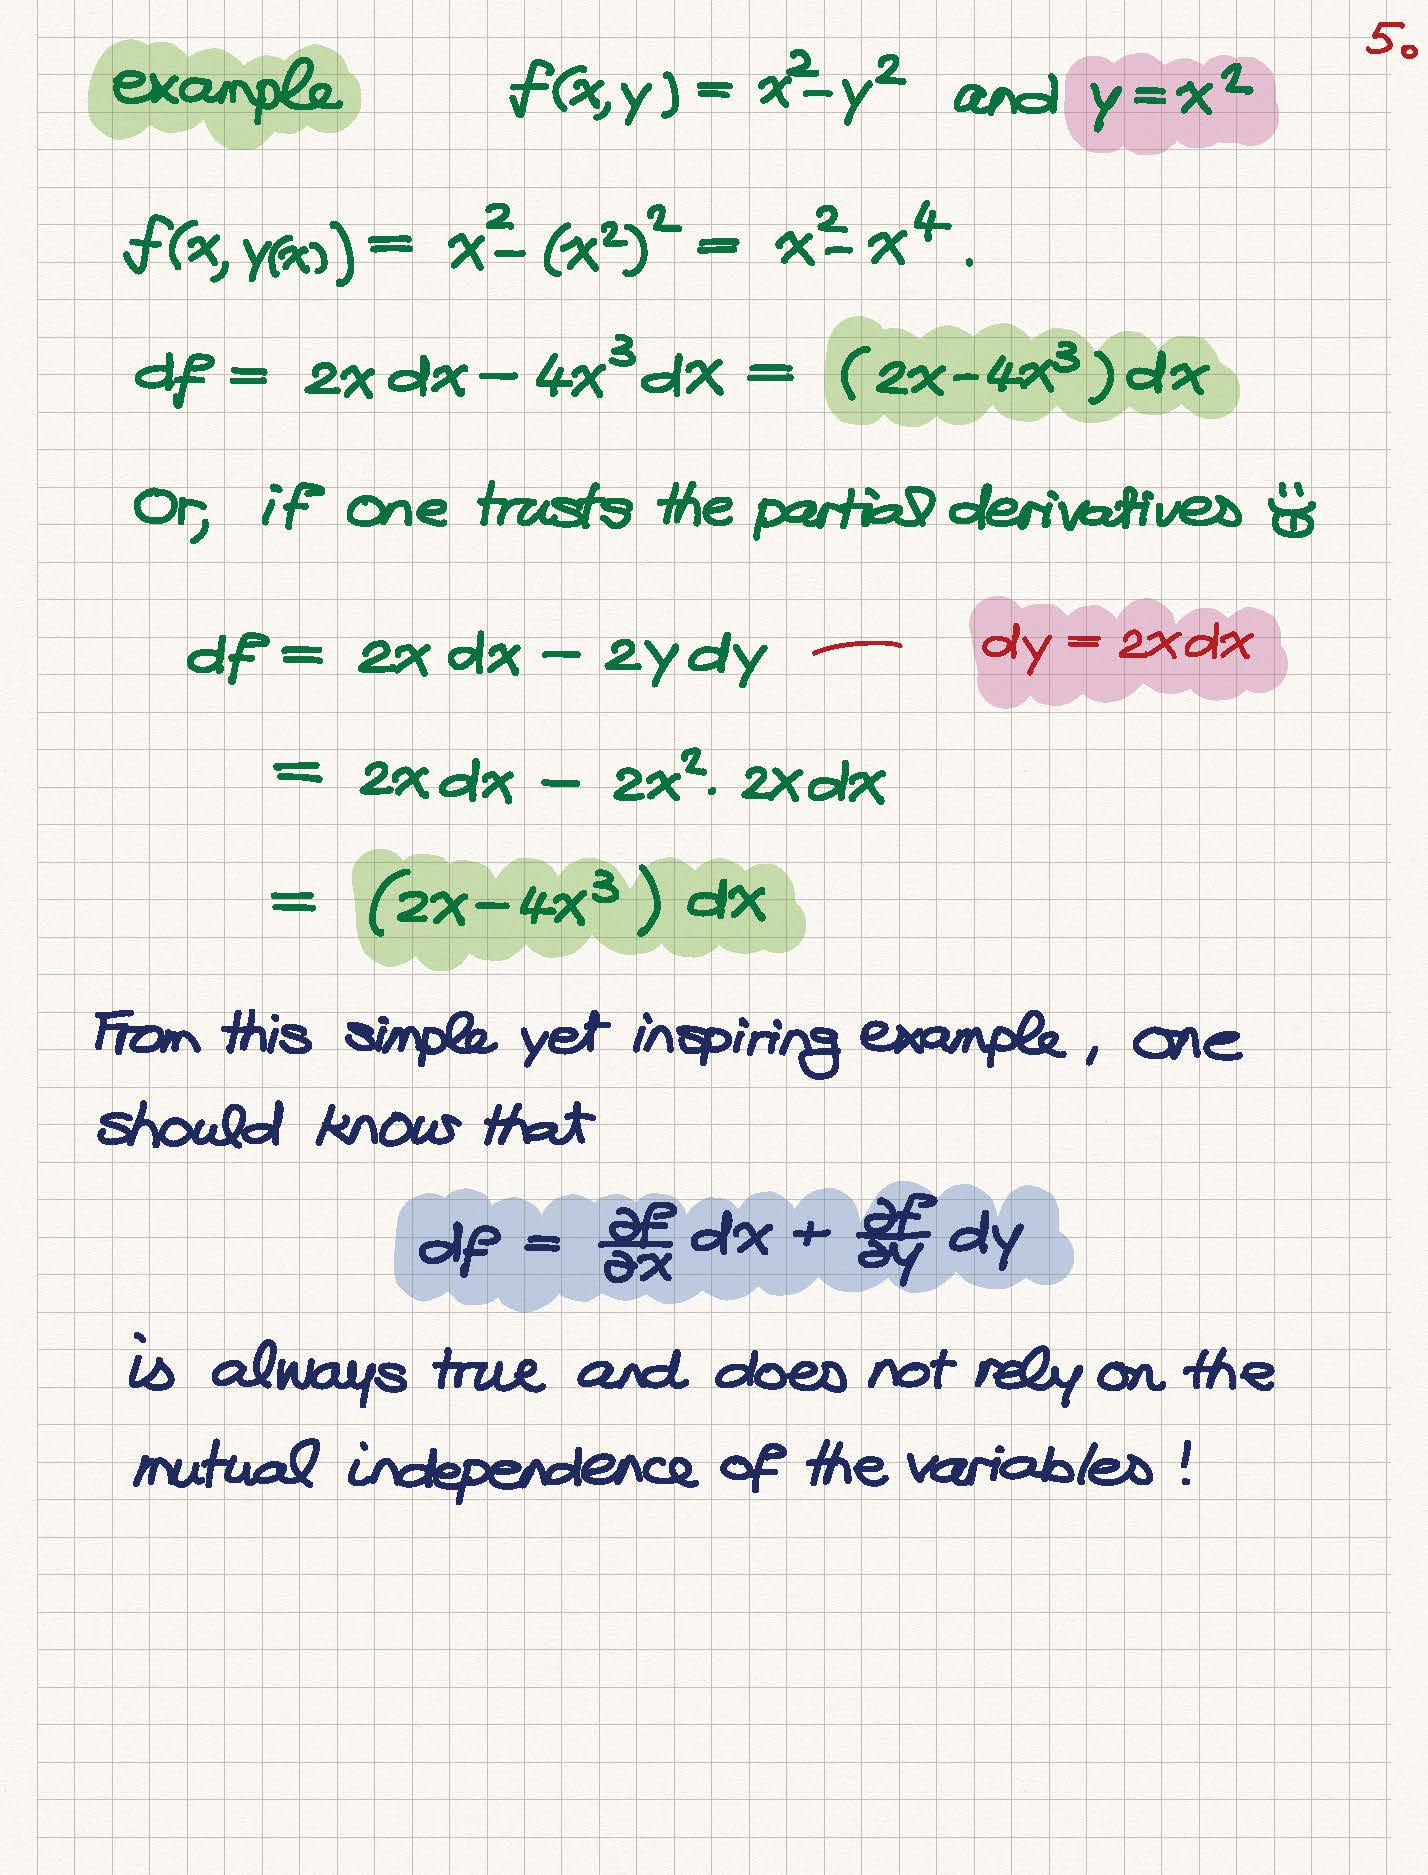 5.
example f(x,y) = x² - y² and y = x²
f(x, y(x)) = x² - (x²)² = x² - x⁴.
df = 2x dx - 4x³dx = (2x - 4x³) dx
Or, if one trusts the partial derivatives
df = 2x dx - 2y dy — dy = 2x dx
= 2x dx - 2x² · 2x dx
= (2x - 4x³) dx
From this simple yet inspiring example, one
should know that
df = ∂f/∂x dx + ∂f/∂y dy
is always true and does not rely on the
mutual independence of the variables!